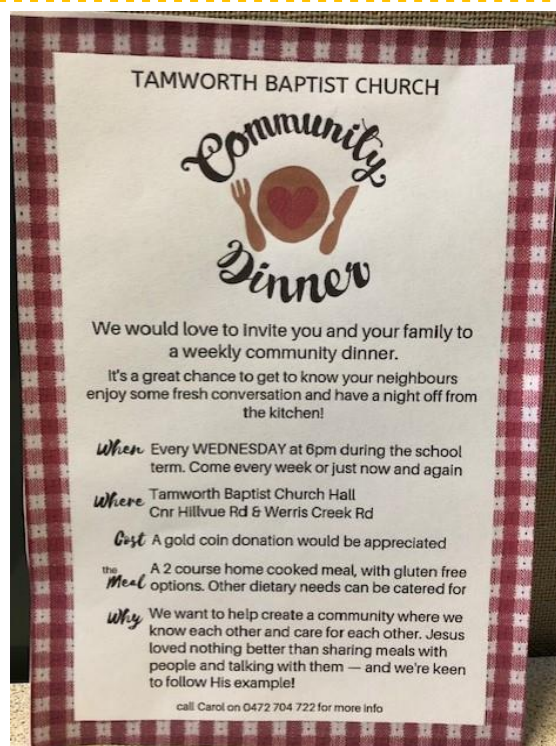 TAMWORTH BAPTIST CHURCH
Community
Dinner
We would love to invite you and your family to
a weekly community dinner.
It's a great chance to get to know your neighbours
enjoy some fresh conversation and have a night off from
the kitchen!
When Every WEDNESDAY at 6pm during the school
term. Come every week or just now and again
Where Tamworth Baptist Church Hall
Cnr Hillvue Rd & Werris Creek Rd
Cost A gold coin donation would be appreciated
the Meal A 2 course home cooked meal, with gluten free
options. Other dietary needs can be catered for
Why We want to help create a community where we
know each other and care for each other. Jesus
loved nothing better than sharing meals with
people and talking with them — and we're keen
to follow His example!
call Carol on 0472 704 722 for more info